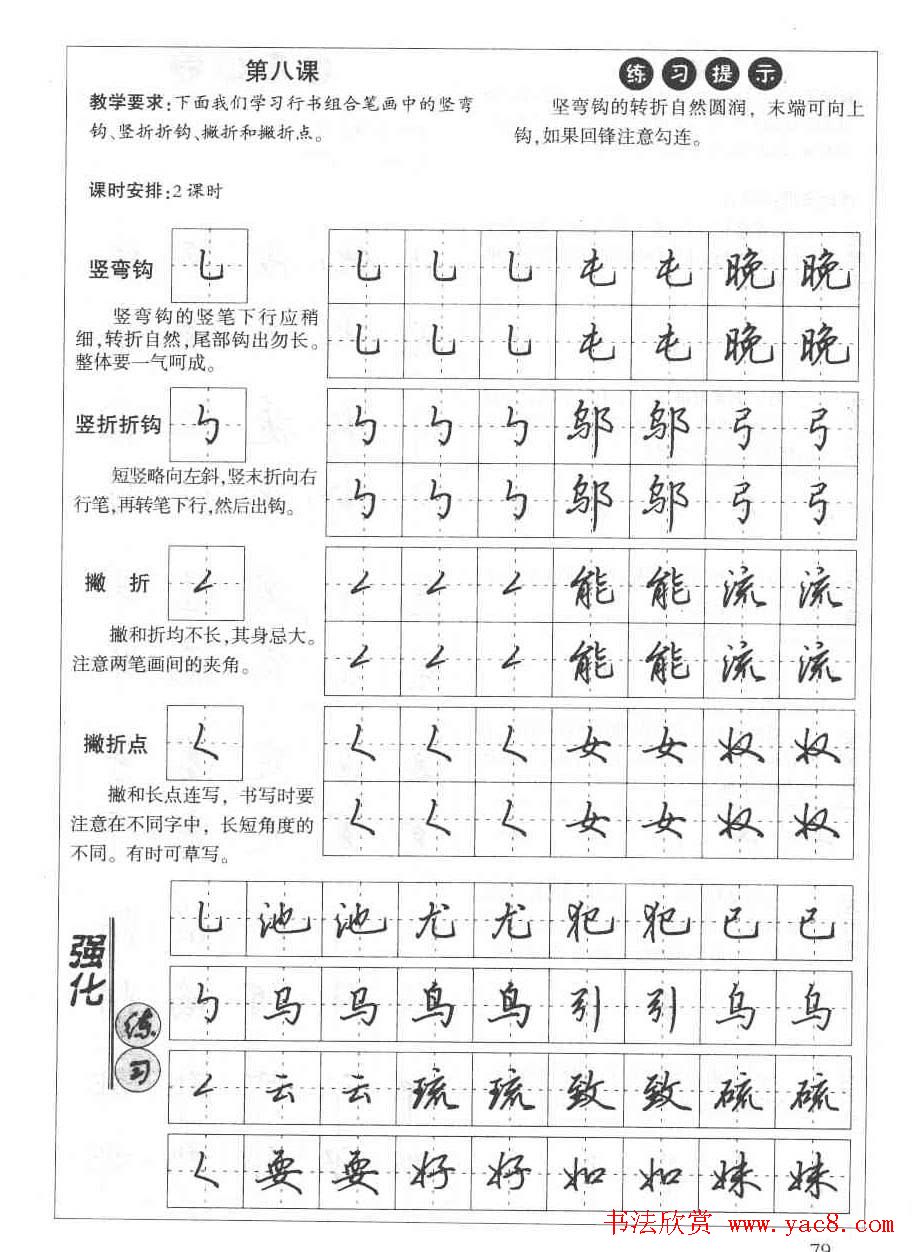 第八课
教学要求:下面我们学习行书组合笔画中的竖弯
钩、竖折折钩、撇折和撇折点。
课时安排:2课时
练习提示
竖弯钩的转折自然圆润，末端可向上
钩,如果回锋注意勾连。
竖弯钩 乚
竖弯钩的竖笔下行应稍
细,转折自然,尾部钩出勿长。
整体要一气呵成。
乚 乚 乚 屯 屯 晚 晚
乚 乚 乚 屯 屯 晚 晚
竖折折钩 ㄣ
短竖略向左斜,竖末折向右
行笔,再转笔下行,然后出钩。
ㄣ ㄣ ㄣ 邬 邬 弓 弓
ㄣ ㄣ ㄣ 邬 邬 弓 弓
撇 折 ㄥ
撇和折均不长,其身忌大。
注意两笔画间的夹角。
ㄥ ㄥ ㄥ 能 能 流 流
ㄥ ㄥ ㄥ 能 能 流 流
撇折点 ㄑ
撇和长点连写，书写时要
注意在不同字中，长短角度的
不同。有时可草写。
ㄑ ㄑ ㄑ 女 女 奴 奴
ㄑ ㄑ ㄑ 女 女 奴 奴
强化
练习
乚 池 池 尤 尤 犯 犯 已 已
ㄣ 马 马 鸟 鸟 引 引 乌 乌
ㄥ 云 云 琉 琉 致 致 硫 硫
ㄑ 要 要 好 好 如 如 妹 妹
书法欣赏 www.yac8.com
79